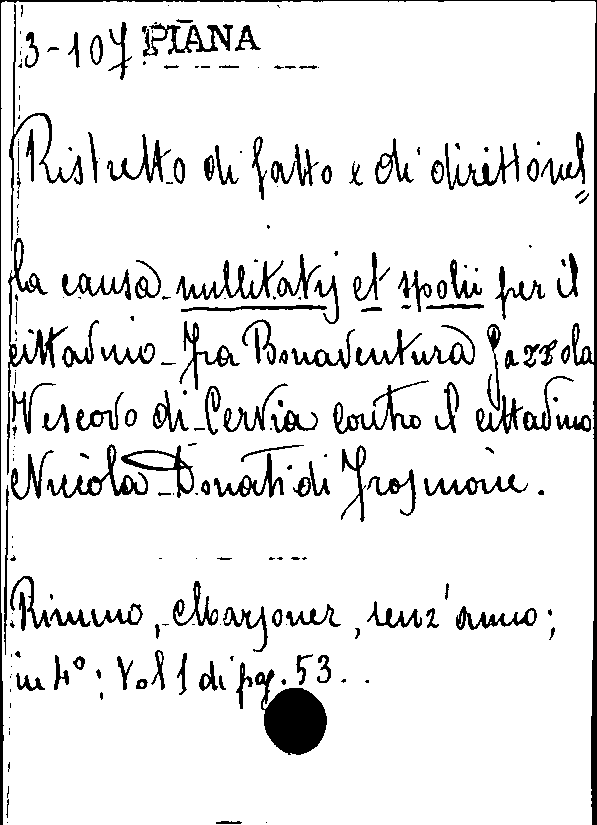 3-107 PIANA
Ristretto di fatto e di diritto nel=
la causa nullitatij et spolii per il
cittadino Fra Bonaventura Gazzola
Vescovo di Cervia contro il cittadino
Niccola Donati di Frosinone.
Rimino, Marsoner, senz'anno;
in 4°; Vol 1 di pg. 53.